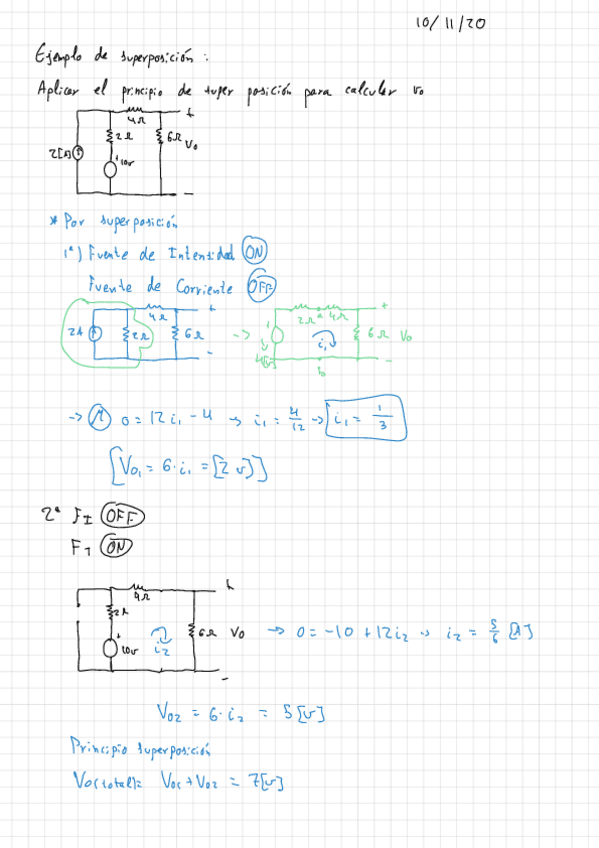 10/11/20
Ejemplo de superposición :
Aplicar el principio de super posición para calcular vo
4Ω +
2Ω 6Ω Vo
2[A] + 10v
-
* Por superposición
1ª) Fuente de Intensidad ON
Fuente de Corriente OFF
4Ω +
2A 2Ω 6Ω
-
->
2Ω a 4Ω +
i1 6Ω Vo
4[v] b -
-> M 0 = 12 i1 - 4 -> i1 = 4/12 -> i1 = 1/3
[Vo1 = 6·i1 = [2 v]]
2ª FI OFF
FT ON
4Ω +
2Ω
+ 10v i2 6Ω Vo -> 0 = -10 + 12 i2 -> i2 = 5/6 [A]
-
Vo2 = 6·i2 = 5[v]
Principio superposición
Vo(total)= Vo1 + Vo2 = 7[v]